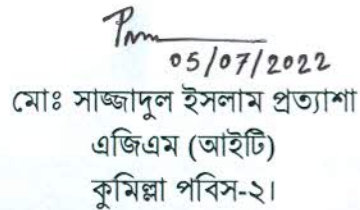 05/07/2022
মোঃ সাজ্জাদুল ইসলাম প্রত্যাশা
এজিএম (আইটি)
কুমিল্লা পবিস-২।